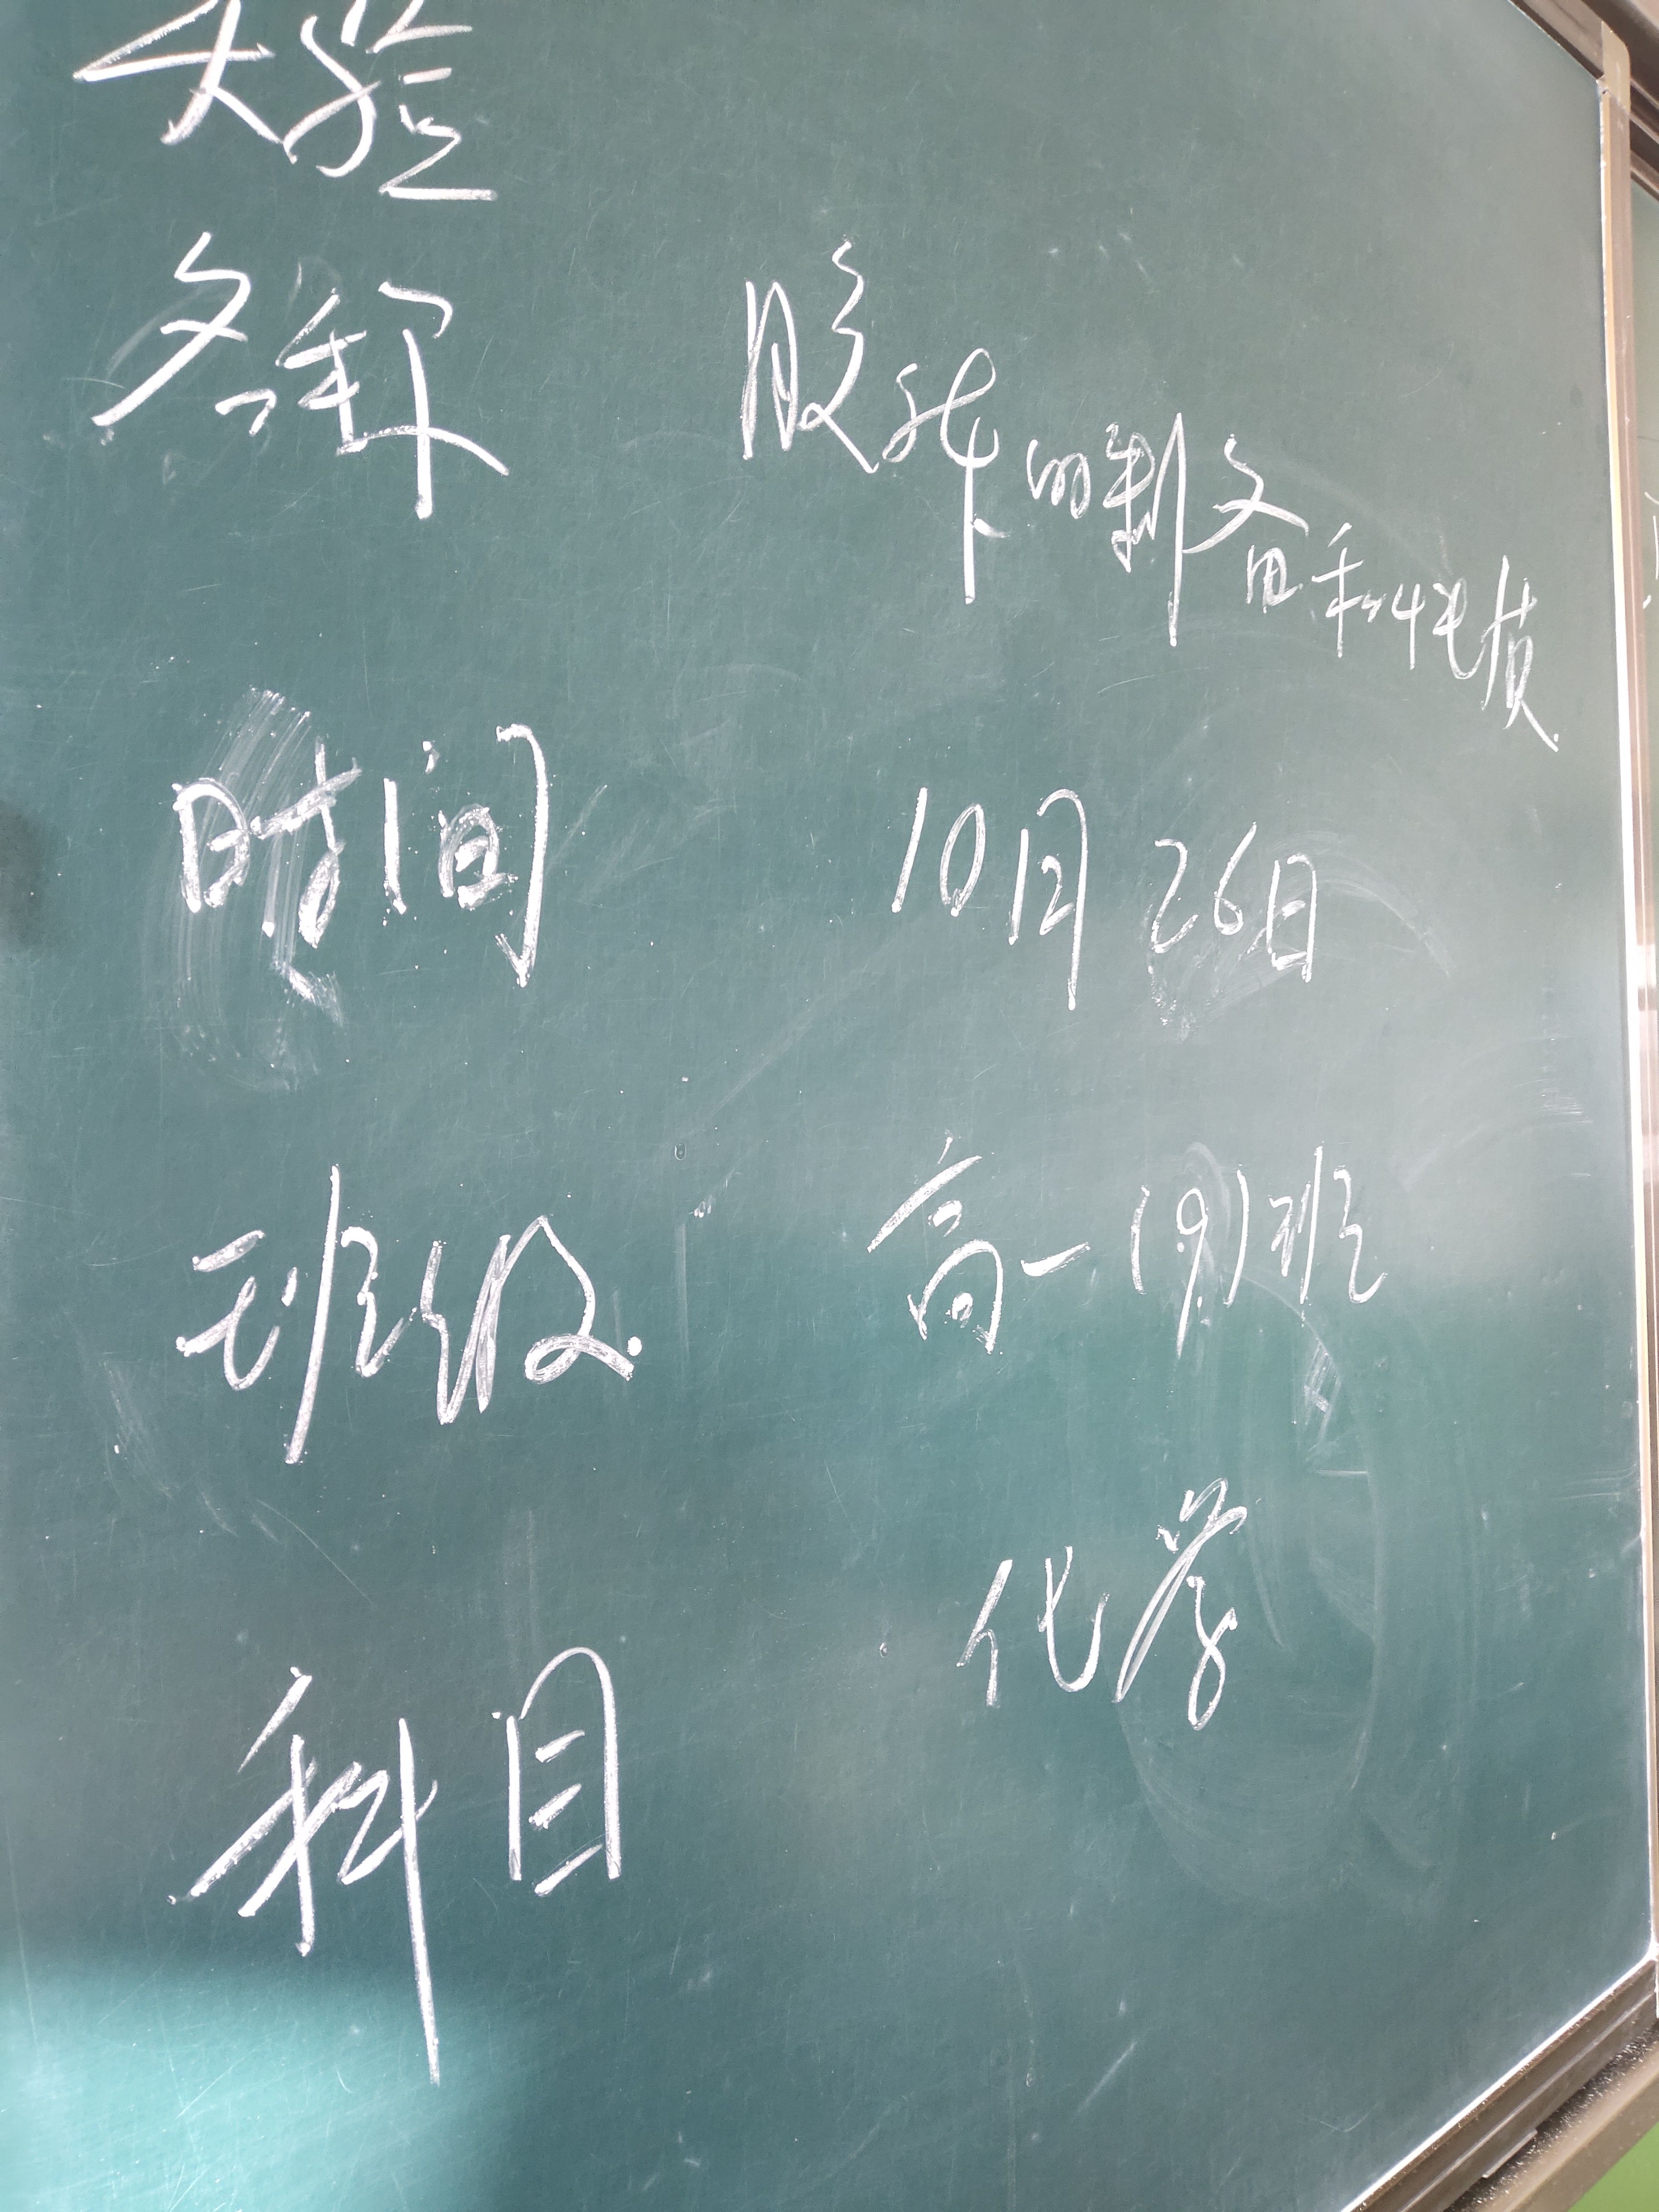 实验
名称 胶体的制备和性质
时间 10月26日
班级 高一(9)班
科目 化学